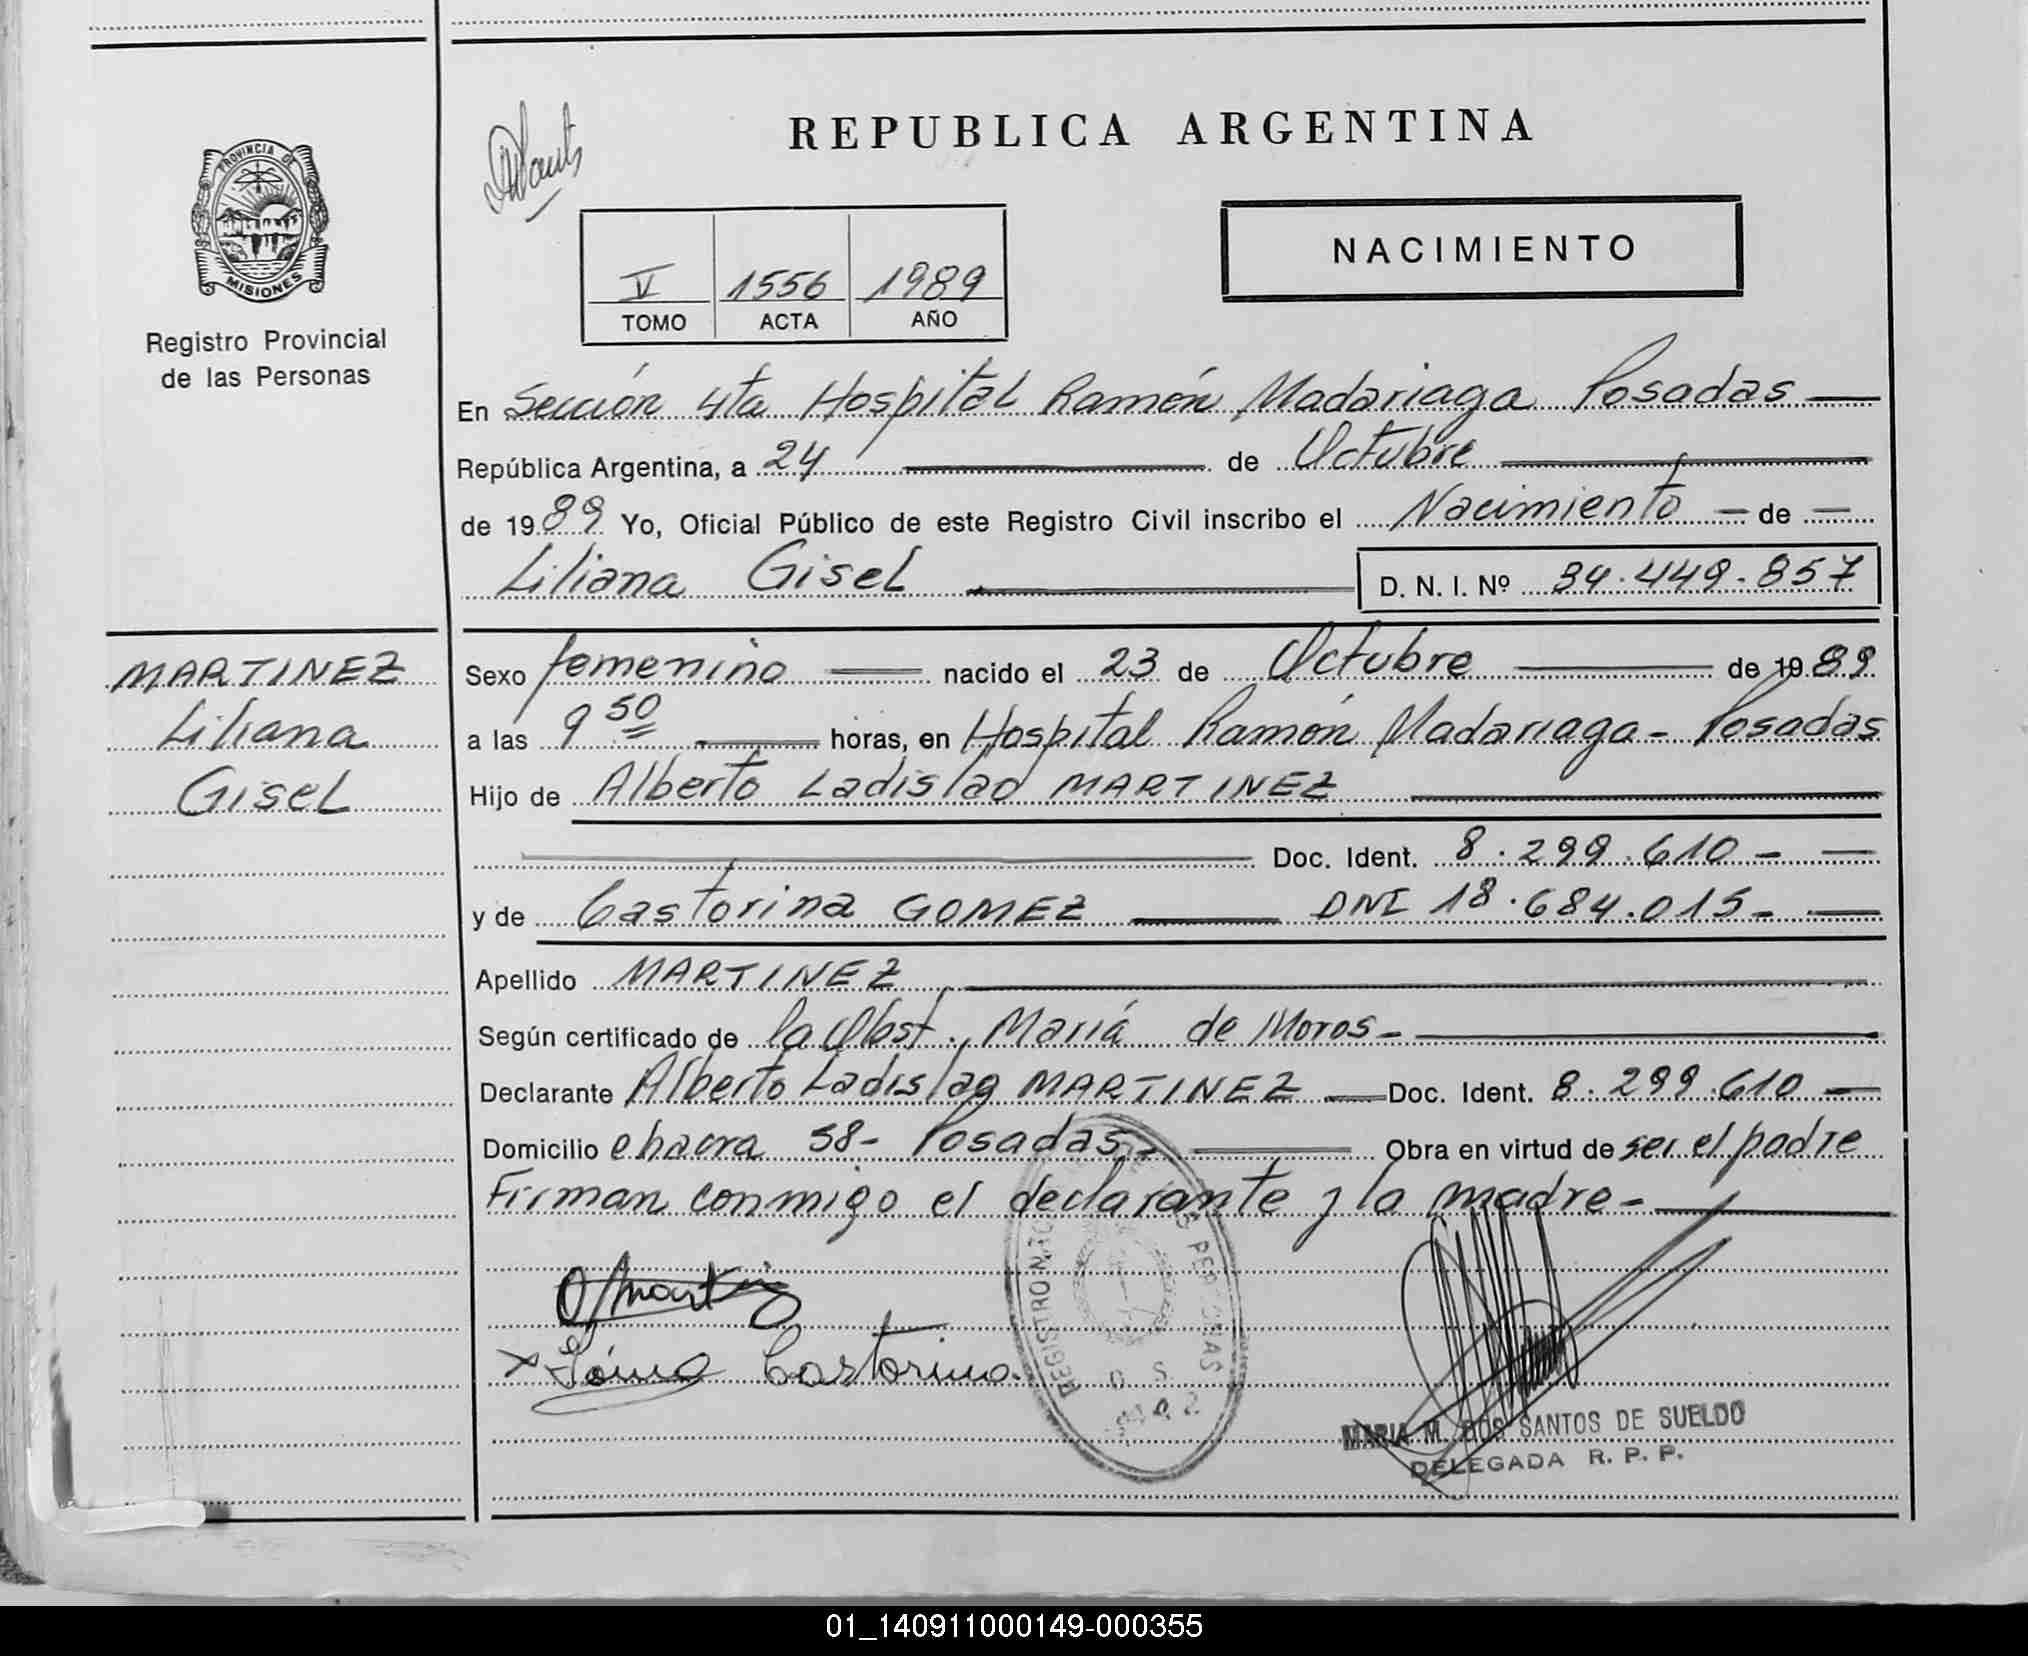 REPUBLICA ARGENTINA
PROVINCIA DE
MISIONES
Registro Provincial
de las Personas
NACIMIENTO
V 1556 1989
TOMO ACTA AÑO
En Sección 4ta Hospital Ramón Madariaga Posadas
República Argentina, a 24 de Octubre
de 1989 Yo, Oficial Público de este Registro Civil inscribo el Nacimiento de
Liliana Gisel D. N. I. Nº 34.449.857
MARTINEZ
Liliana
Gisel
Sexo femenino nacido el 23 de Octubre de 1989
a las 9 50 horas, en Hospital Ramón Madariaga - Posadas
Hijo de Alberto Ladislao MARTINEZ
Doc. Ident. 8.299.610 -
y de Castorina GOMEZ DNI 18.684.015 -
Apellido MARTINEZ
Según certificado de la Obst. María de Moros -
Declarante Alberto Ladislao MARTINEZ Doc. Ident. 8.299.610
Domicilio chacra 38 - Posadas - Obra en virtud de ser el padre
Firman conmigo el declarante y la madre -
Castorina
REGISTRO PERSONAS
MARIA M. DOS SANTOS DE SUELDO
DELEGADA R. P. P.
01_140911000149-000355